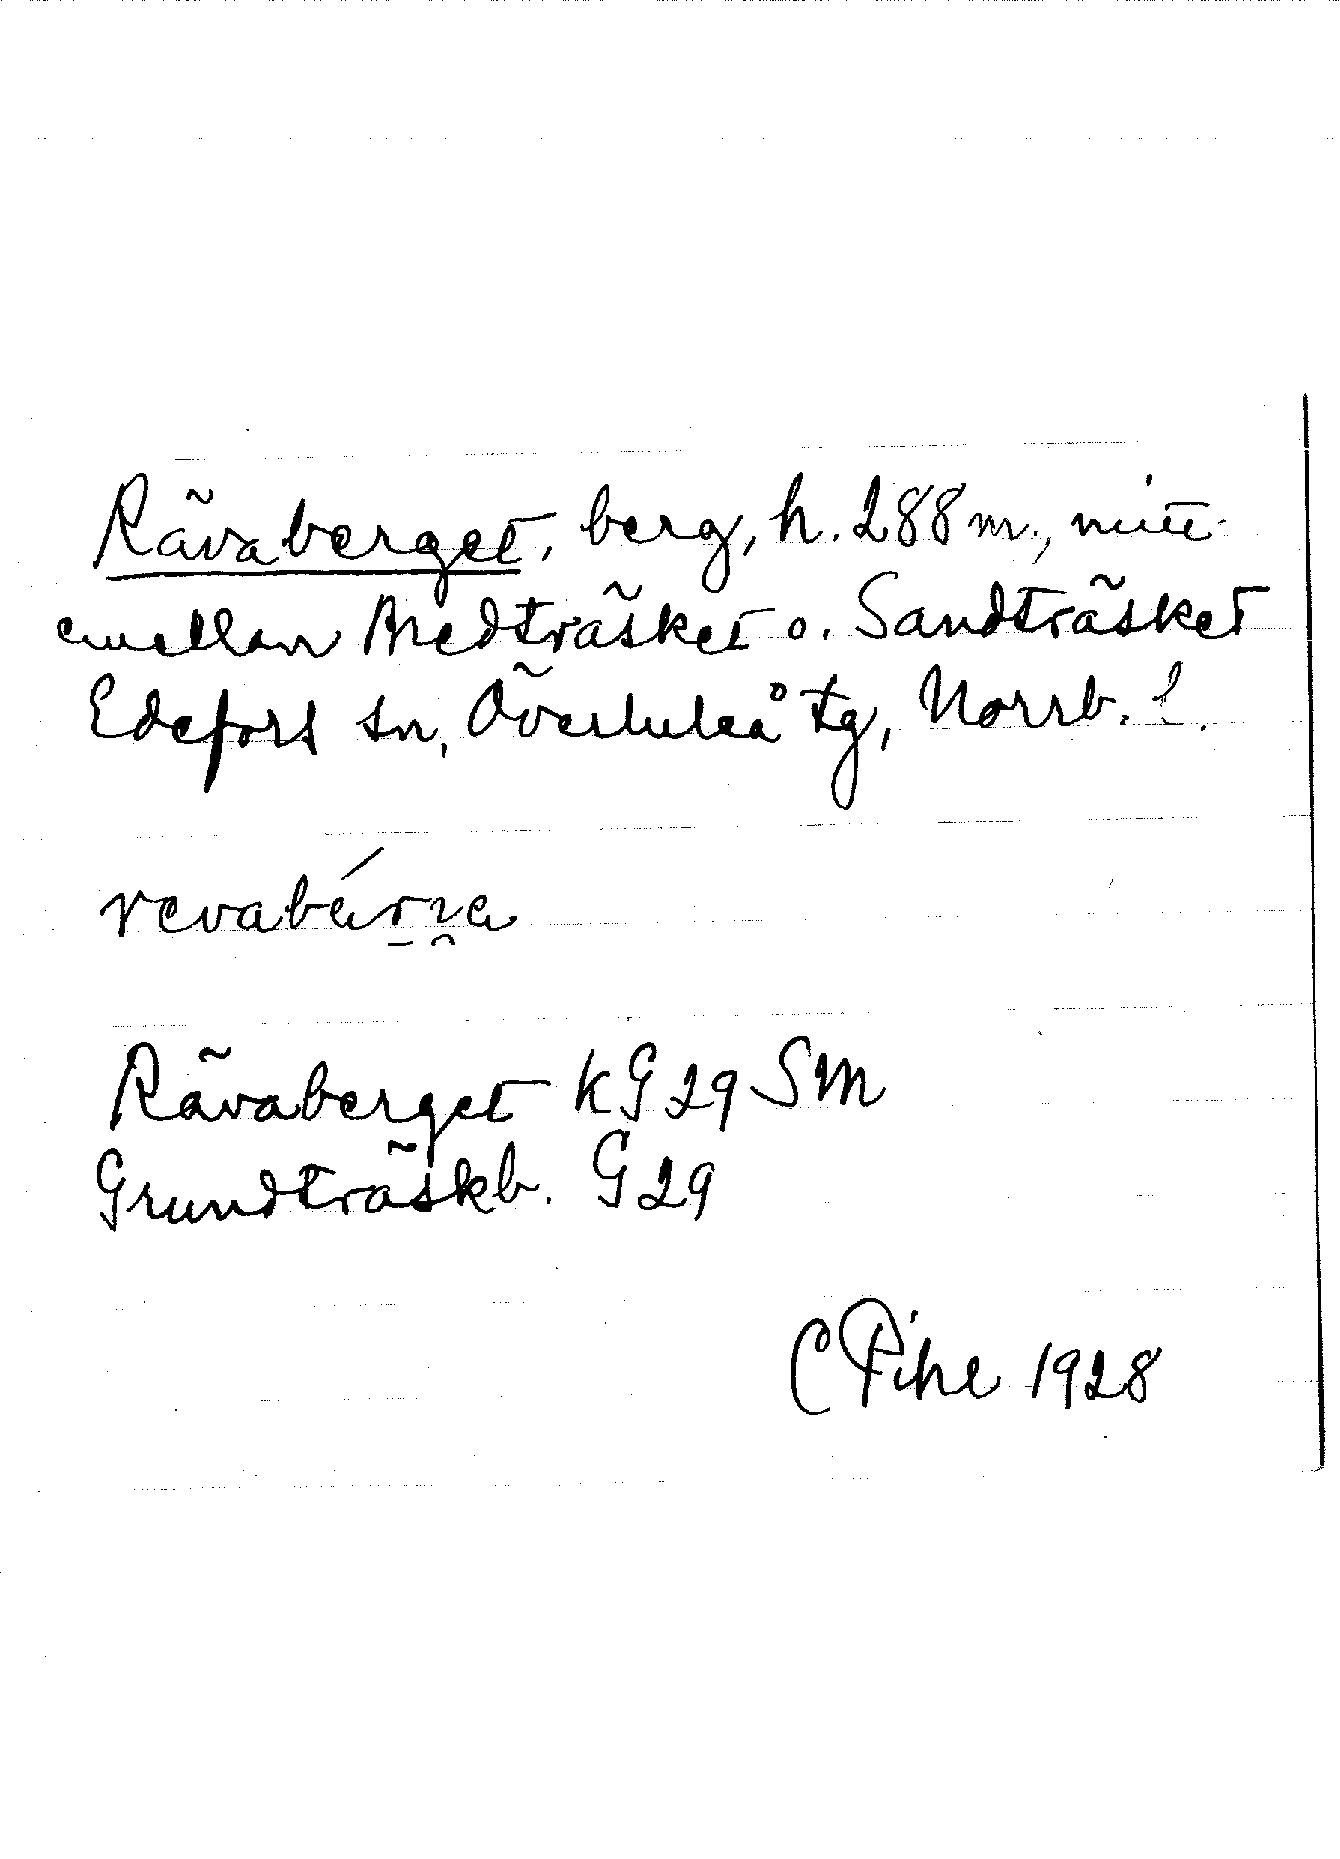 Rävaberget, berg, h. 288 m., mitt
emellan Bredträsket o. Sandträsket
Edefors sn, Överluleå tg, Norrb. l.
Rävaberget kG29 SM
Grundträskb. G29
C Pihl 1928